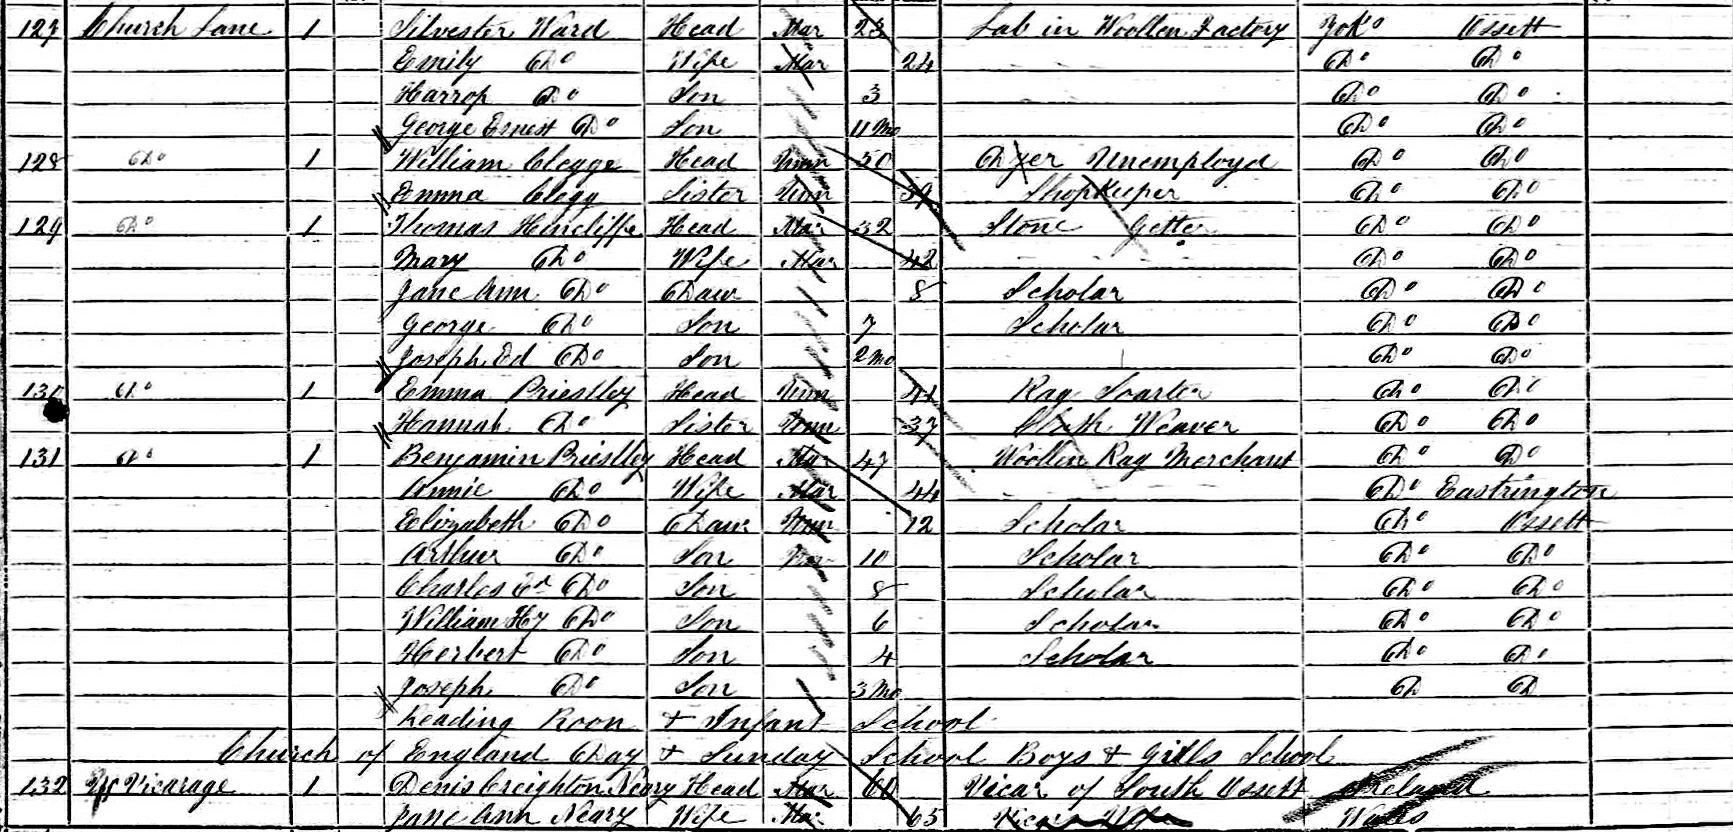 127 Church Lane 1 Silvester Ward Head Mar 23 Lab in Woollen Factory Yok° Ossett
Emily Do Wife Mar 24 Do Do
Harrop Do Son 3 Do Do
George Ernest Do Son 11 Mo Do Do
128 Do 1 William Clegge Head Unm 50 Dyer Unemployd Do Do
Emma Clegg Sister Unm 39 Shopkeeper Do Do
129 Do 1 Thomas Hincliffe Head Mar 32 Stone Getter Do Do
Mary Do Wife Mar 42 Do Do
Jane Ann Do Daur 8 Scholar Do Do
George Do Son 7 Scholar Do Do
Joseph Ed Do Son 2 Mo Do Do
130 Do 1 Emma Priestley Head Unm 41 Rag Soarter Do Do
Hannah Do Sister Unm 37 Cloth Weaver Do Do
131 Do 1 Benjamin Priestley Head Mar 47 Woollen Rag Merchant Do Do
Annie Do Wife Mar 44 Do Eastrington
Elizabeth Do Daur Unm 12 Scholar Do Ossett
Arthur Do Son Unm 10 Scholar Do Do
Charles Ed Do Son 8 Scholar Do Do
William Hy Do Son 6 Scholar Do Do
Herbert Do Son 4 Scholar Do Do
Joseph Do Son 3 Mo Do Do
Reading Roon + Infant School
Church of England Day + Sunday School Boys + Girls School
132 Vicarage 1 Denis Creighton Neary Head Mar 61 Vicar of South Ossett Ireland
Jane Ann Neary Wife Mar 65 Vicars Wife Wales